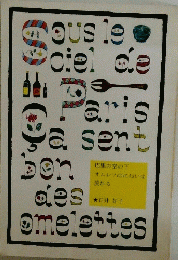 Sous le
Ciel de
Paris
Ça sent
bon
des
omelettes
巴里の空の下
オムレツのにおいは
流れる
★石井好子